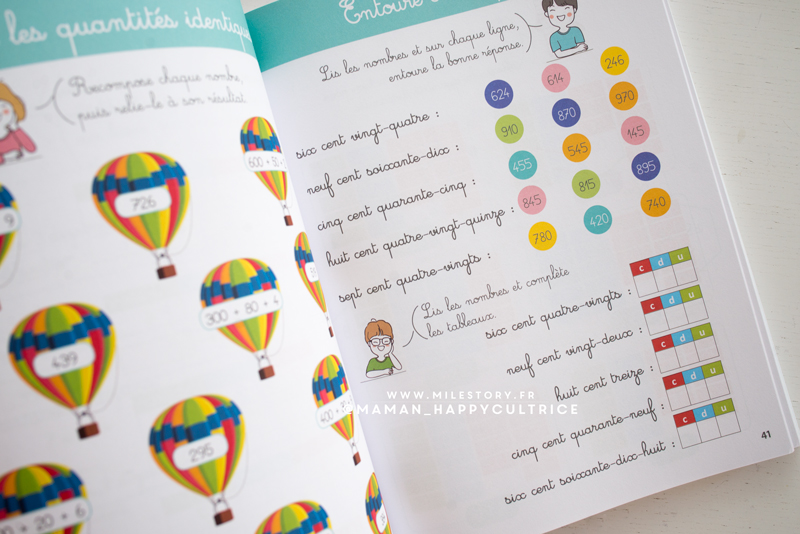 les quantités identiqu
Recompose chaque nombre,
puis relie-le à son résultat.
726
300 + 80 + 4
439
295
Entoure
Lis les nombres et sur chaque ligne,
entoure la bonne réponse.
six cent vingt-quatre :
624
614
246
neuf cent soixante-dix :
910
870
970
cinq cent quarante-cinq :
455
545
145
huit cent quatre-vingt-quinze :
845
815
895
sept cent quatre-vingts :
780
420
740
Lis les nombres et complète
les tableaux.
six cent quatre-vingts :
c d u
neuf cent vingt-deux :
c d u
huit cent treize :
c d u
cinq cent quarante-neuf :
c d u
six cent soixante-dix-huit :
c d u
WWW.MILESTORY.FR
@MAMAN_HAPPYCULTRICE
41